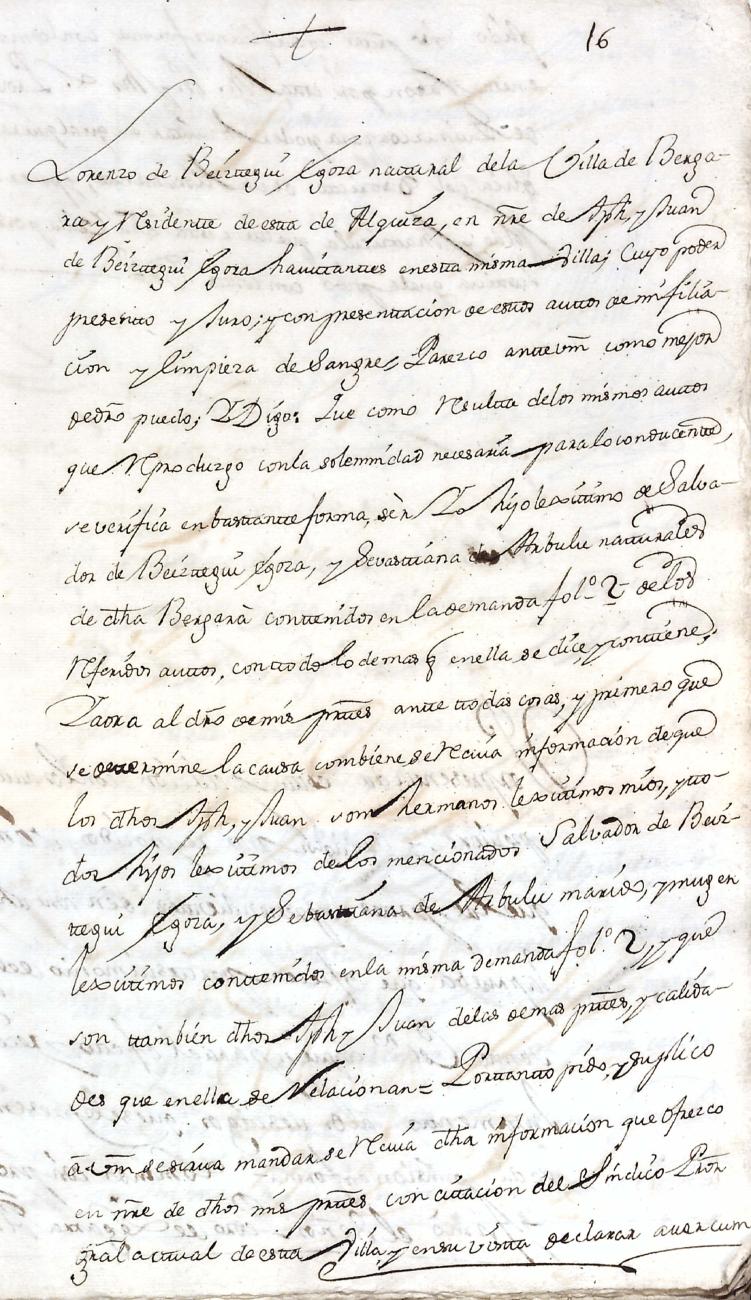 16
Lorenzo de Beiztegui Egoza natural dela Villa de Berga-
ra y Residente de esta de Alquiza, en nre de Jph, y Juan
de Beiztegui Egoza havitantes enesta misma Villa; Cuyo poder
presento y Juro; y con presentacion de estos autos de mi filia-
cion y limpieza de Sangre, Parezco ante vm como mejor
de dro puedo; Y Digo: Que como Resulta delos mismos autos
que Reproduzgo conla solemnidad necesaria para lo conducente,
se verifica en bastante forma, sèr Yo hijo lexitimo de Salva-
dor de Beiztegui Egoza, y Sevastiana de Arbulu naturales
de dha Bergarà contenidos en la demanda fol.º 2 de los
Referidos autos, con todo lo demas q enella se dice, y contiene;
Y aora al dro de mis prtes ante todas cosas, y primero que
se determine la causa combiene se Reciva informacion de que
los dhos Jph, y Juan som hermanos lexitimos mios, y to-
dos hijos lexitimos de los mencionados Salvador de Beiz-
tegui Egoza, y Sebastiana de Arbulu marido, y muger
lexitimos contenidos enla misma demanda fol.º 2, y que
son tambien dhos Jph y Juan delas demas prtes, y calida-
des que enella se Relacionan = Por tanto pido, y suplico
à vm se sirva mandar se Reciva dha informacion que ofrezco
en nre de dhos mis prtes con citacion del Sindico Pror
gral actual de esta Villa, y en su vista declarar aver cum